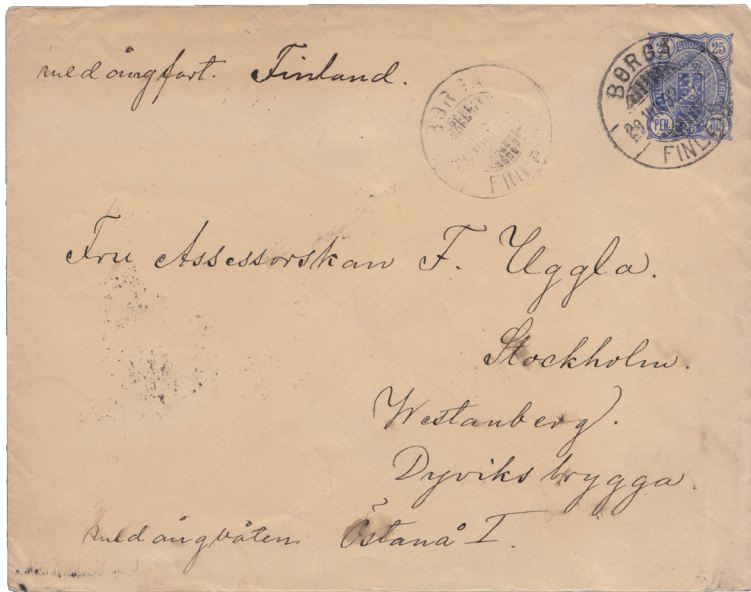 med ångfart. Finland.
BORGÅ
FINL
BORGÅ
FINL
25 25
PEN.
Fru Assessorskan F. Uggla.
Stockholm.
Westanberg.
Dyviks brygga.
med ångbåten Östanå I.